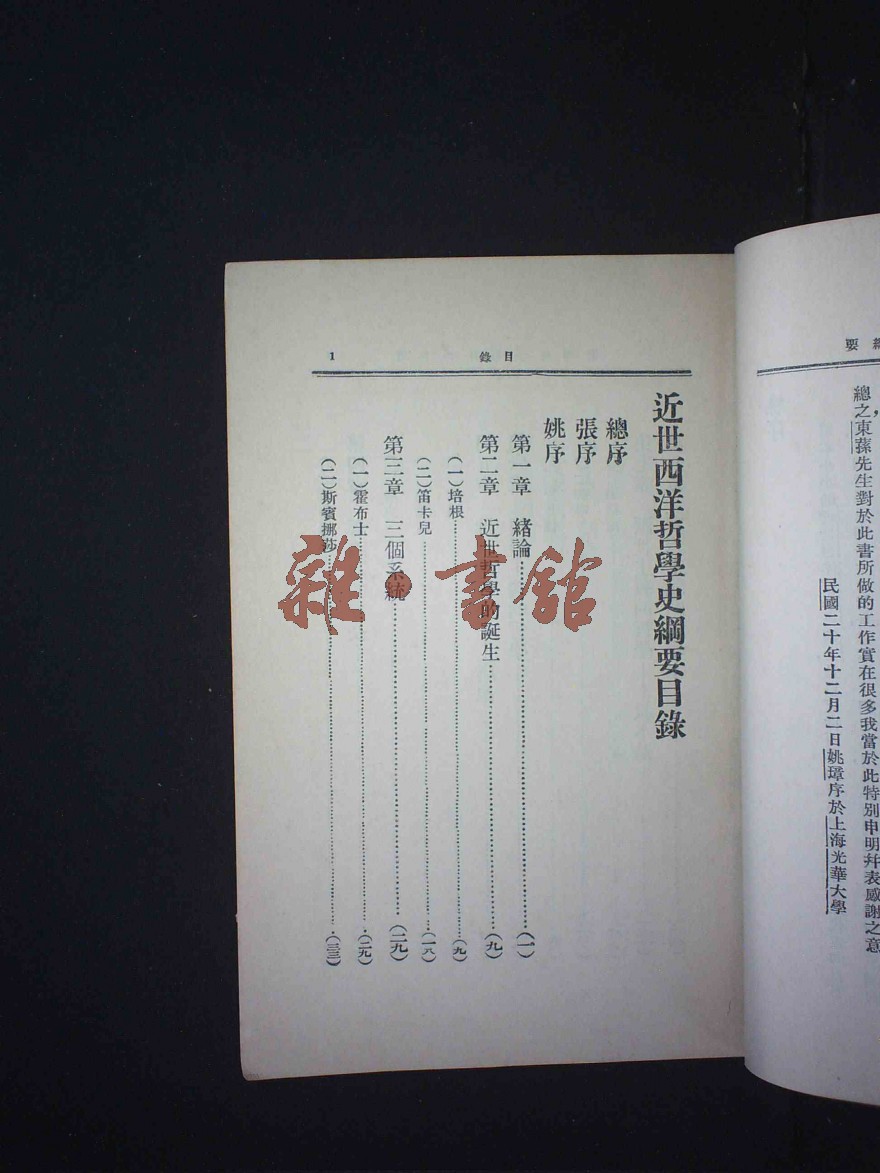 要
總之東蓀先生對於此書所做的工作實在很多我當於此特別申明幷表感謝之意
民國二十年十二月二日姚璋序於上海光華大學
目錄
1
近世西洋哲學史綱要目錄
總序
張序
姚序
第一章 緒論(一)
第二章 近世哲學的誕生(九)
(一)培根(九)
(二)笛卡兒(一八)
第三章 三個系統(二九)
(一)霍布士(二九)
(二)斯賓挪莎(三三)
雜·書館